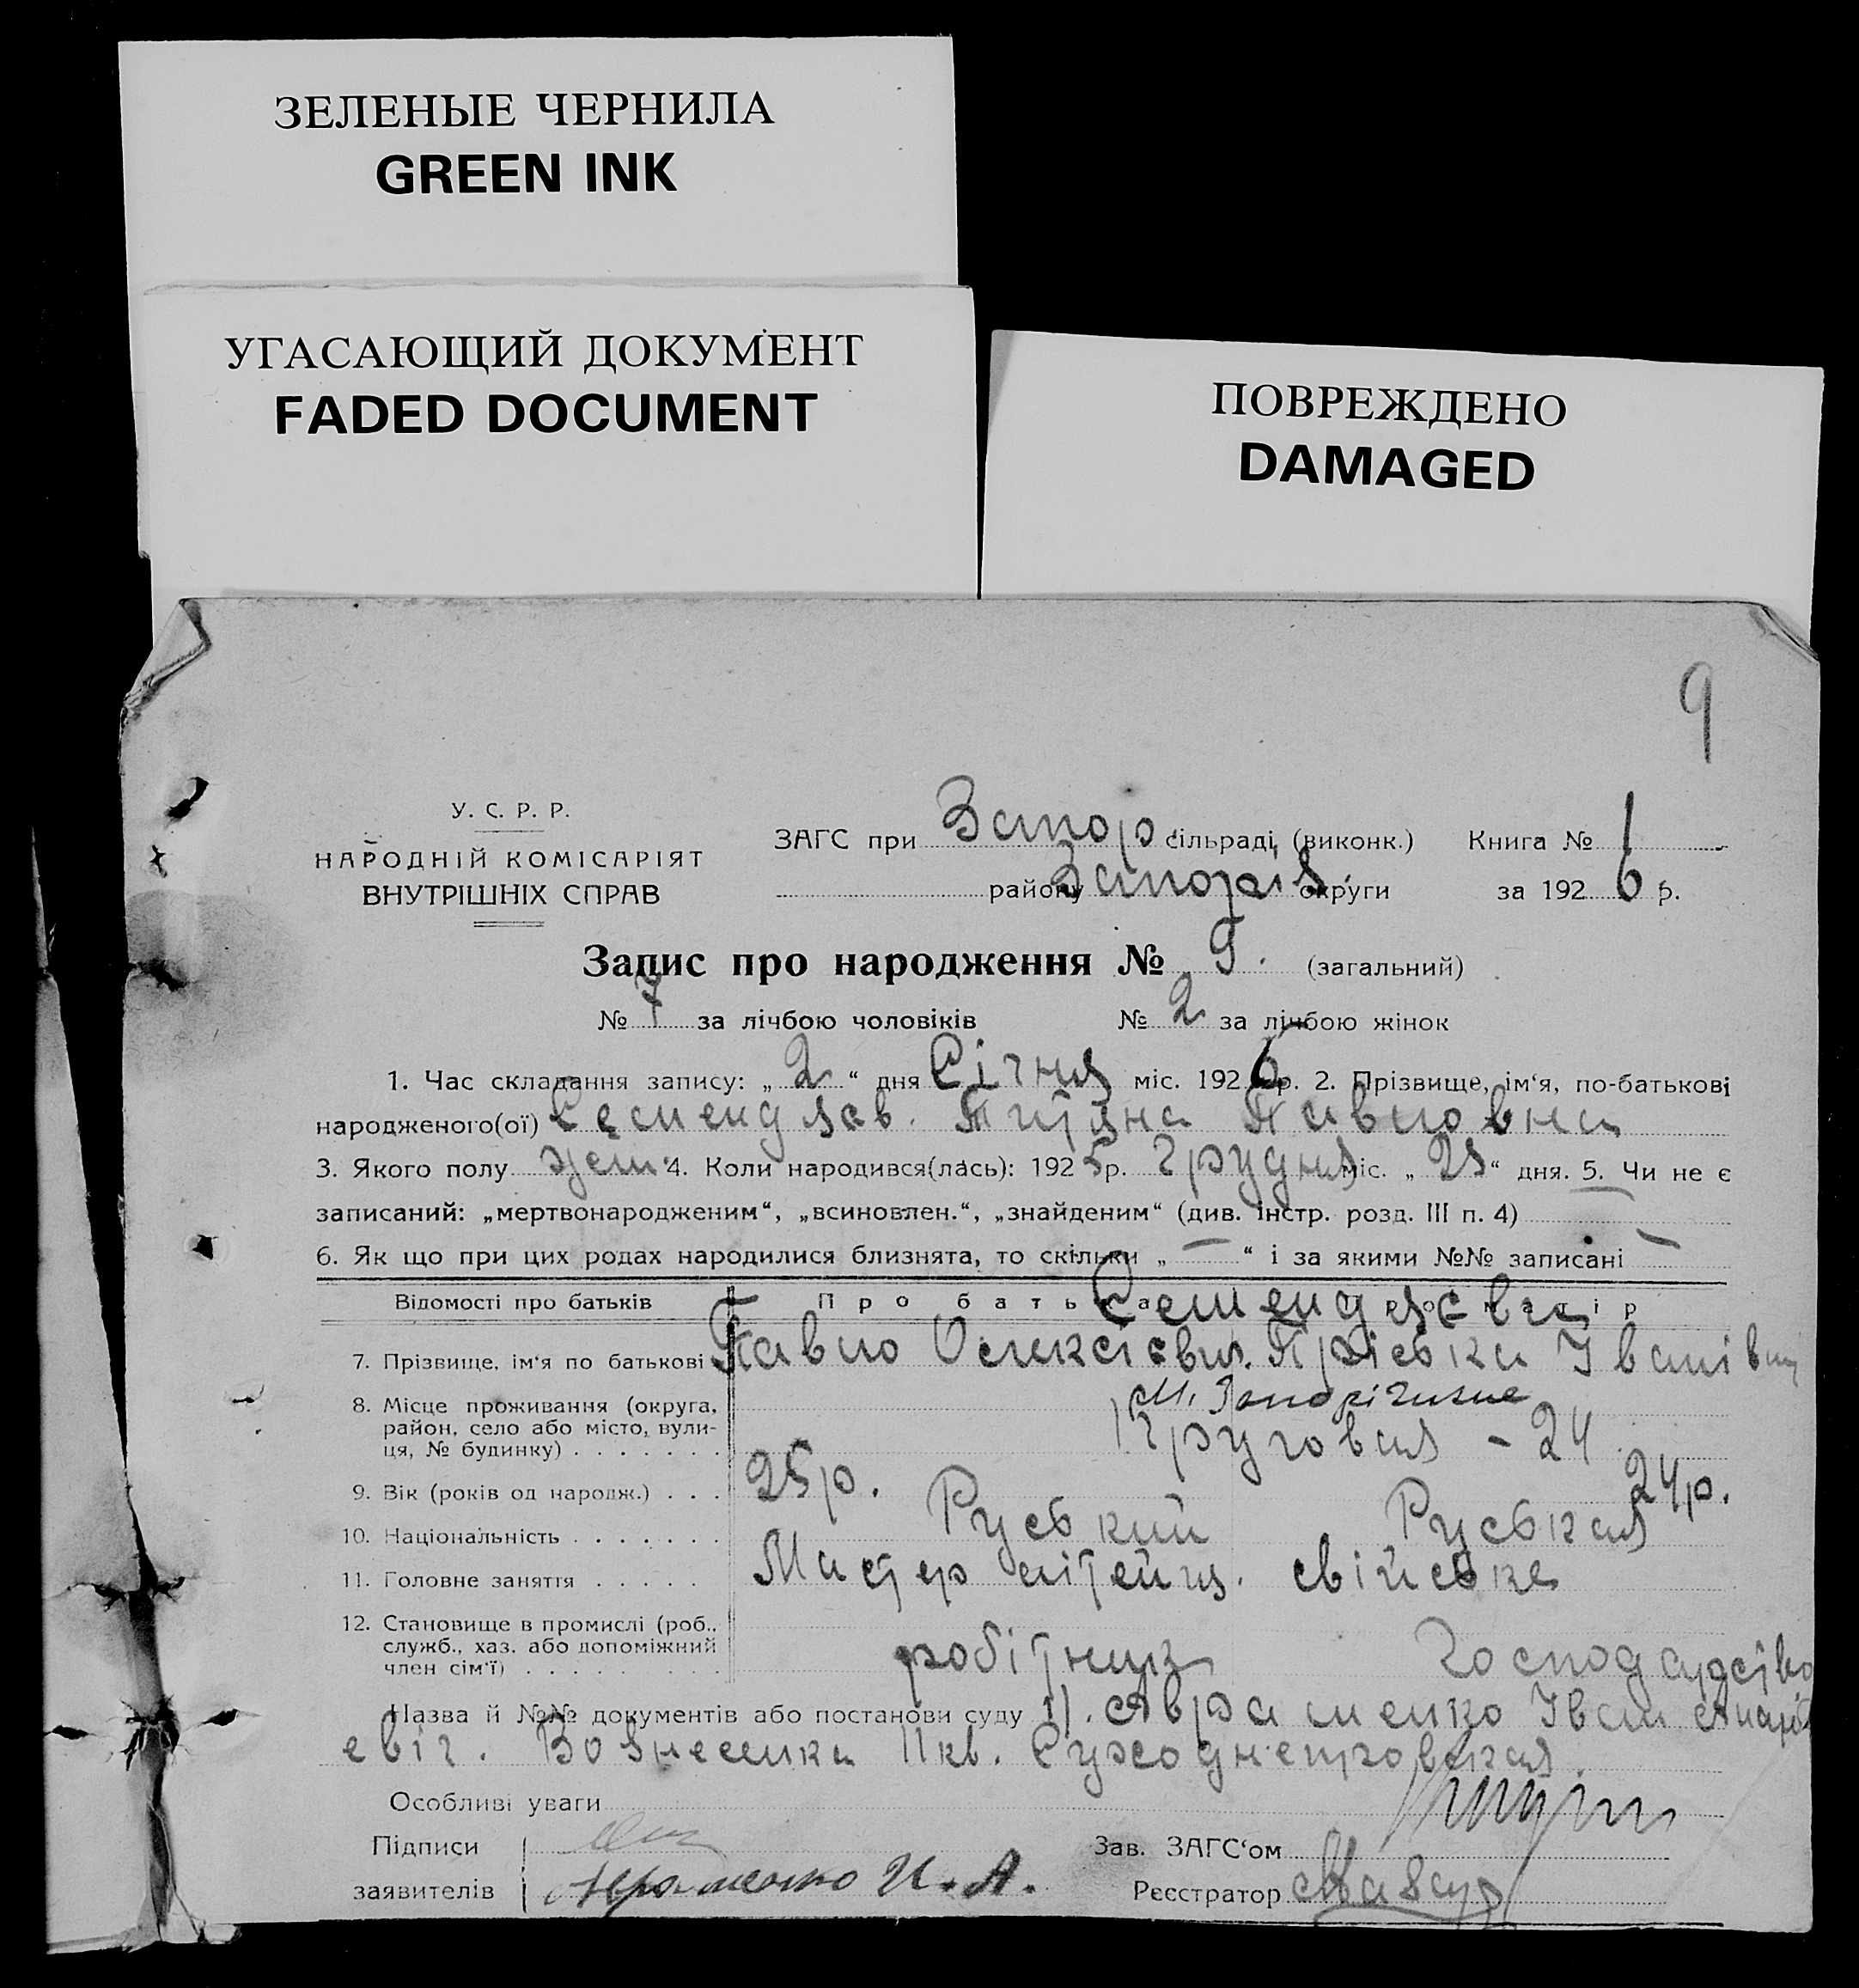 ЗЕЛЕНЫЕ ЧЕРНИЛА
GREEN INK
УГАСАЮЩИЙ ДОКУМЕНТ
FADED DOCUMENT
ПОВРЕЖДЕНО
DAMAGED
9
У. С. Р. Р.
НАРОДНІЙ КОМІСАРІЯТ
ВНУТРІШНІХ СПРАВ
ЗАГС при Запор сільраді, (виконк.) Книга № 1
району Запоріз. округи за 192 6 р.
Запис про народження № 9. (загальний)
№ 7 за лічбою чоловіків № 2 за лічбою жінок
1. Час складання запису: „ 2 “ дня Січня міс. 192 6 р. 2. Прізвище, ім‘я, по-батькові
народженого(ої) Семендяєв. Тит́яна Павловна
3. Якого полу жен. 4. Коли народився(лась): 192 5 р. Грудня міс. „ 25 “ дня. 5. Чи не є
записаний: „мертвонародженим“, „всиновлен.“, „знайденим“ (див. Інстр. розд. III п. 4)
6. Як що при цих родах народилися близнята, то скільки „ — “ і за якими №№ записані —
Відомості про батьків Про батька Про матір
Семендяєви
7. Прізвище, ім‘я по батькові Павло Олексієвич. Іванівна
8. Місце проживання (округа, м. Запоріжжє
район, село або місто, вули-
ця, № будинку) Кругова́я - 24
9. Вік (років од народж.) 25 р. 24 р.
10. Національність Руський Руськая
11. Головне заняття Мастер літейщ. свійське
12. Становище в промислі (роб.,
служб., хаз. або допоміжний робітник господарство
член сім‘ї)
Назва й №№ документів або постанови суду 1). Авраменко Іван
евіч. Вознесенка 11 кв.
Особливі уваги
Підписи
заявителів Авраменко И. А.
Зав. ЗАГС‘ом
Реєстратор